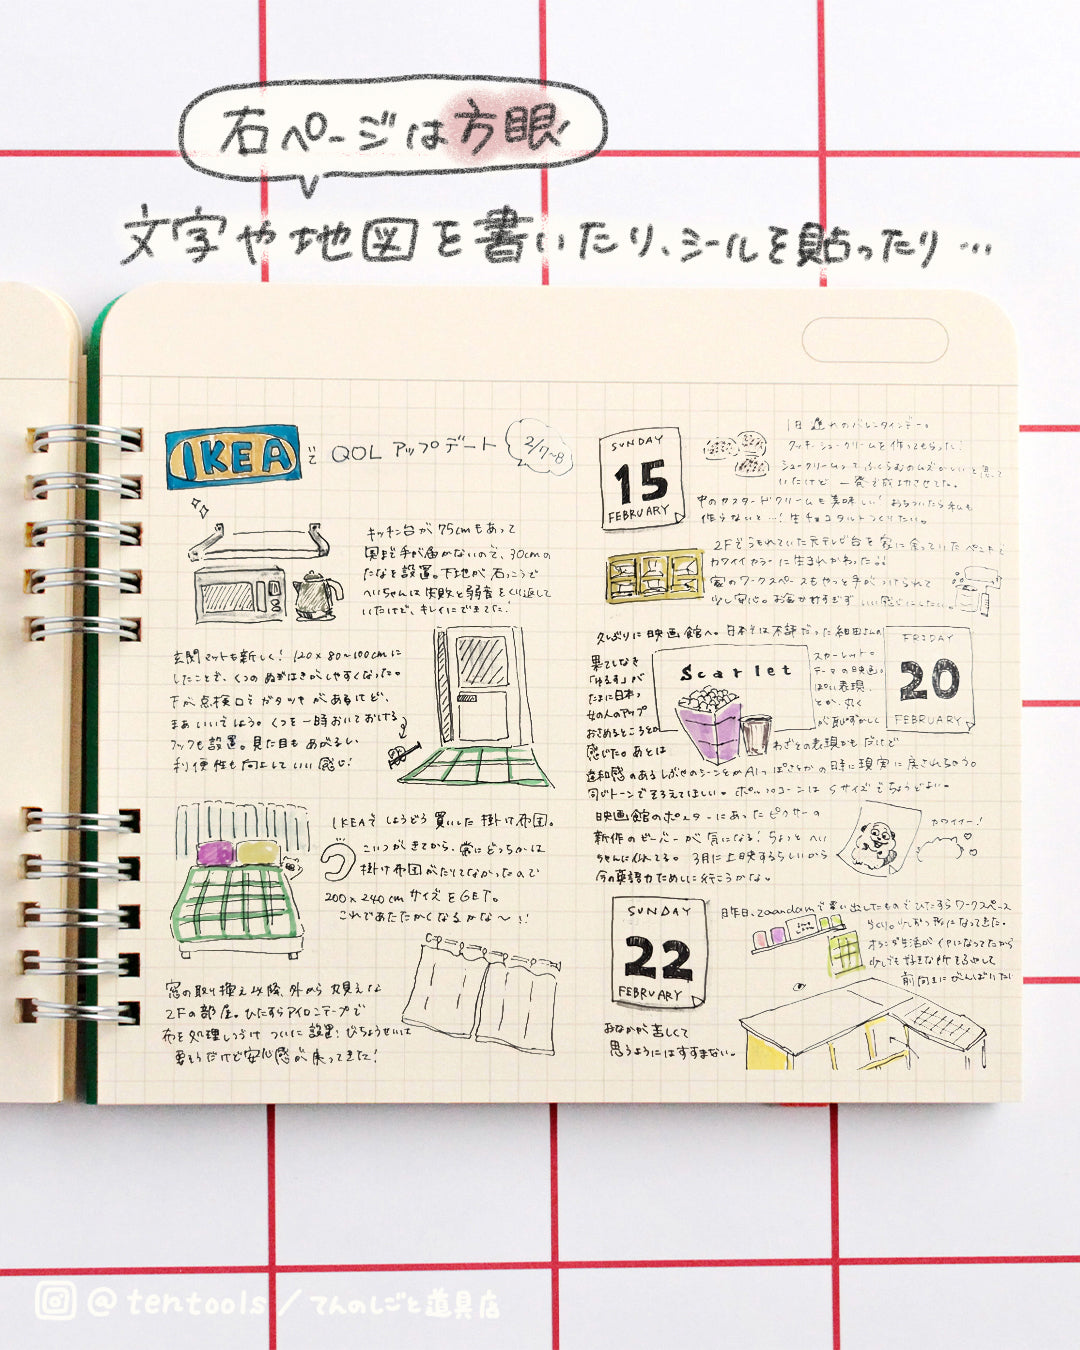 右ページは方眼
文字や地図を書いたり、シールを貼ったり…
IKEAで QOL アップデート 2/7~8
キッチン台が75cmもあって
奥まで手が届かないので、30cmの
たなを設置。下地が石こうで
へいちゃんは失敗と弱音をくり返して
いたけど、キレイにできてた!
玄関マットも新しく! 120×80~100cmに
したことで、くつのぬぎはきがしやすくなった。
下が点検口でガタツキがあるけど、
まあいいでしょう。くつを一時おいておける
フックも設置。見た目もあがるし
利便性も向上していい感じ!
IKEAでしょうどう買いした掛け布団。
こいつがきてから、常にどっちかは
掛け布団がたりてなかったので
200×240cmサイズをGET。
これであたたかくなるかな~!!
窓の取り換え以降、外から丸見えな
2Fの部屋。ひたすらアイロンテープで
布を処理しつづけ ついに設置!
安心感が戻ってきた!
SUNDAY
15
FEBRUARY
1日遅れのバレンタインデー。
クッキーシュークリームを作ってもらった!
シュークリームって ふくらむのムズかしいと思って
いたけど 一発で成功させてた。
中のカスタードクリームも美味しい!
作らないと…! 生チョコタルトつくりたい。
2Fでうもれていた元テレビ台を 家に余っていたペンキで
カワイイカラーに生まれかわった!!
家のワークスペースもやっと手がつけられて
少し安心。お金かけすぎず いい感じにしたい。
久しぶりに映画館へ。日本では不評だった細田さんの
スカーレット。
Scarlet
FRIDAY
20
FEBRUARY
果てしなき
「ゆるす」が
テーマの映画。
たまに日本っ
ぽい表現、
女の人のアップ
とか、丸く
おさめるところとか
が恥ずかしく
感じた。あとは
わざとの表現かもだけど
違和感のあるしばやのシーンとかAIっぽさとかの時に現実に戻されちゃう。
同じトーンでそろえてほしい。ポップコーンはSサイズでちょうどよい。
映画館のポスターにあったピクサーの
新作のビーバーが気になる! ちょっとへい
ちゃんに似てる。3月に上映するらしいから
今の英語力ためしに行こうかな。
カワイイー!
SUNDAY
22
FEBRUARY
昨日、zaandamで買い出ししたものでひたすらワークスペース
づくり。少しずつ形になってきた。
オランダ生活がイヤになってたから
少しでも好きな所をふやして
前向きにがんばりたい
おなかが苦しくて
思うようにはすすまない。
@tentools/てんのしごと道具店